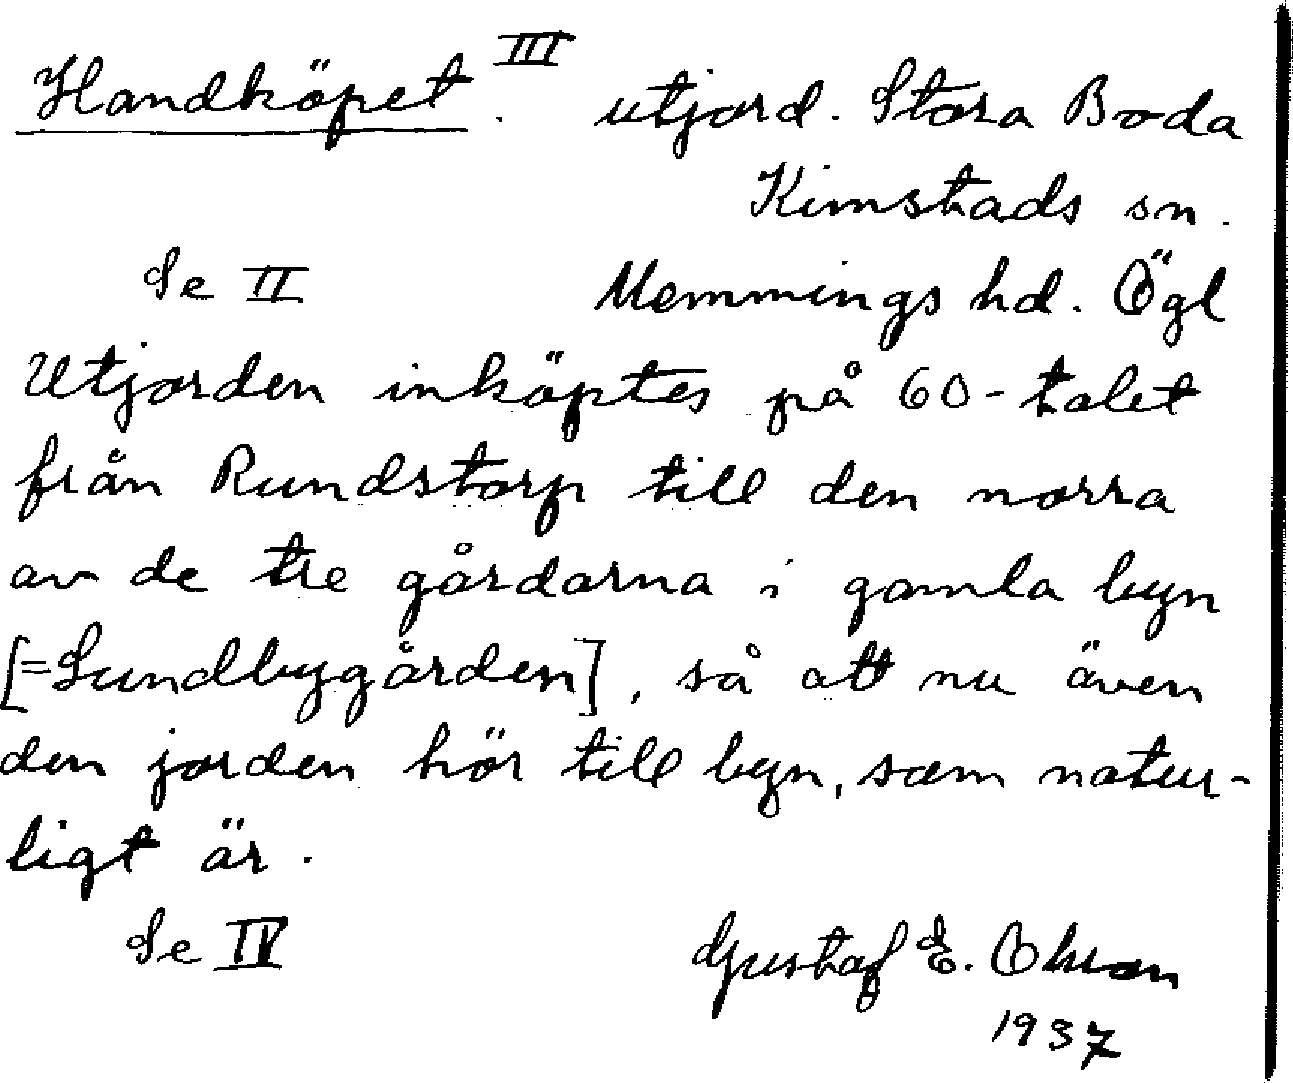 Handköpet III. utjord. Stora Boda
Kimstads sn.
Se II Memmings hd. Ögl
Utjorden inköptes på 60-talet
från Rundstorp till den norra
av de tre gårdarna i gamla byn
[=Sundbygården], så att nu även
den jorden hör till byn, som natur-
ligt är.
Se IV Gustaf E.
1937